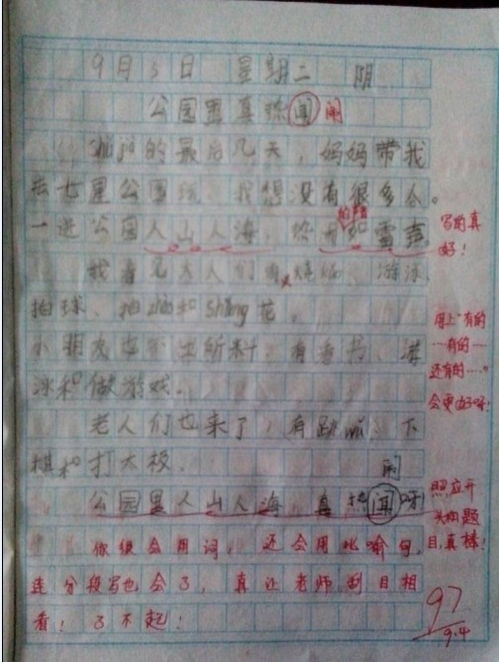 9月3日 星期二 阴
公园里真热闻 闹
的最后几天，妈妈带我
去七星公园玩，我想没有很多人。
一进公园人山人海，
写的真
好！
我看见大人们有 游泳、
拍球、拍zhào和shǎng花。
用上“有的
……有的……
还有的……”
会更好呀！
小朋友也 有看书、游
泳和做游戏。
老人们也来了，有跳wǔ、下
棋和打太极。
闹
公园里人山人海，真热闻呀
照应开
头和题
目，真棒！
你很会用词，还会用比喻句，
连分段写也会了，真让老师刮目相
看！了不起！
97
9.4